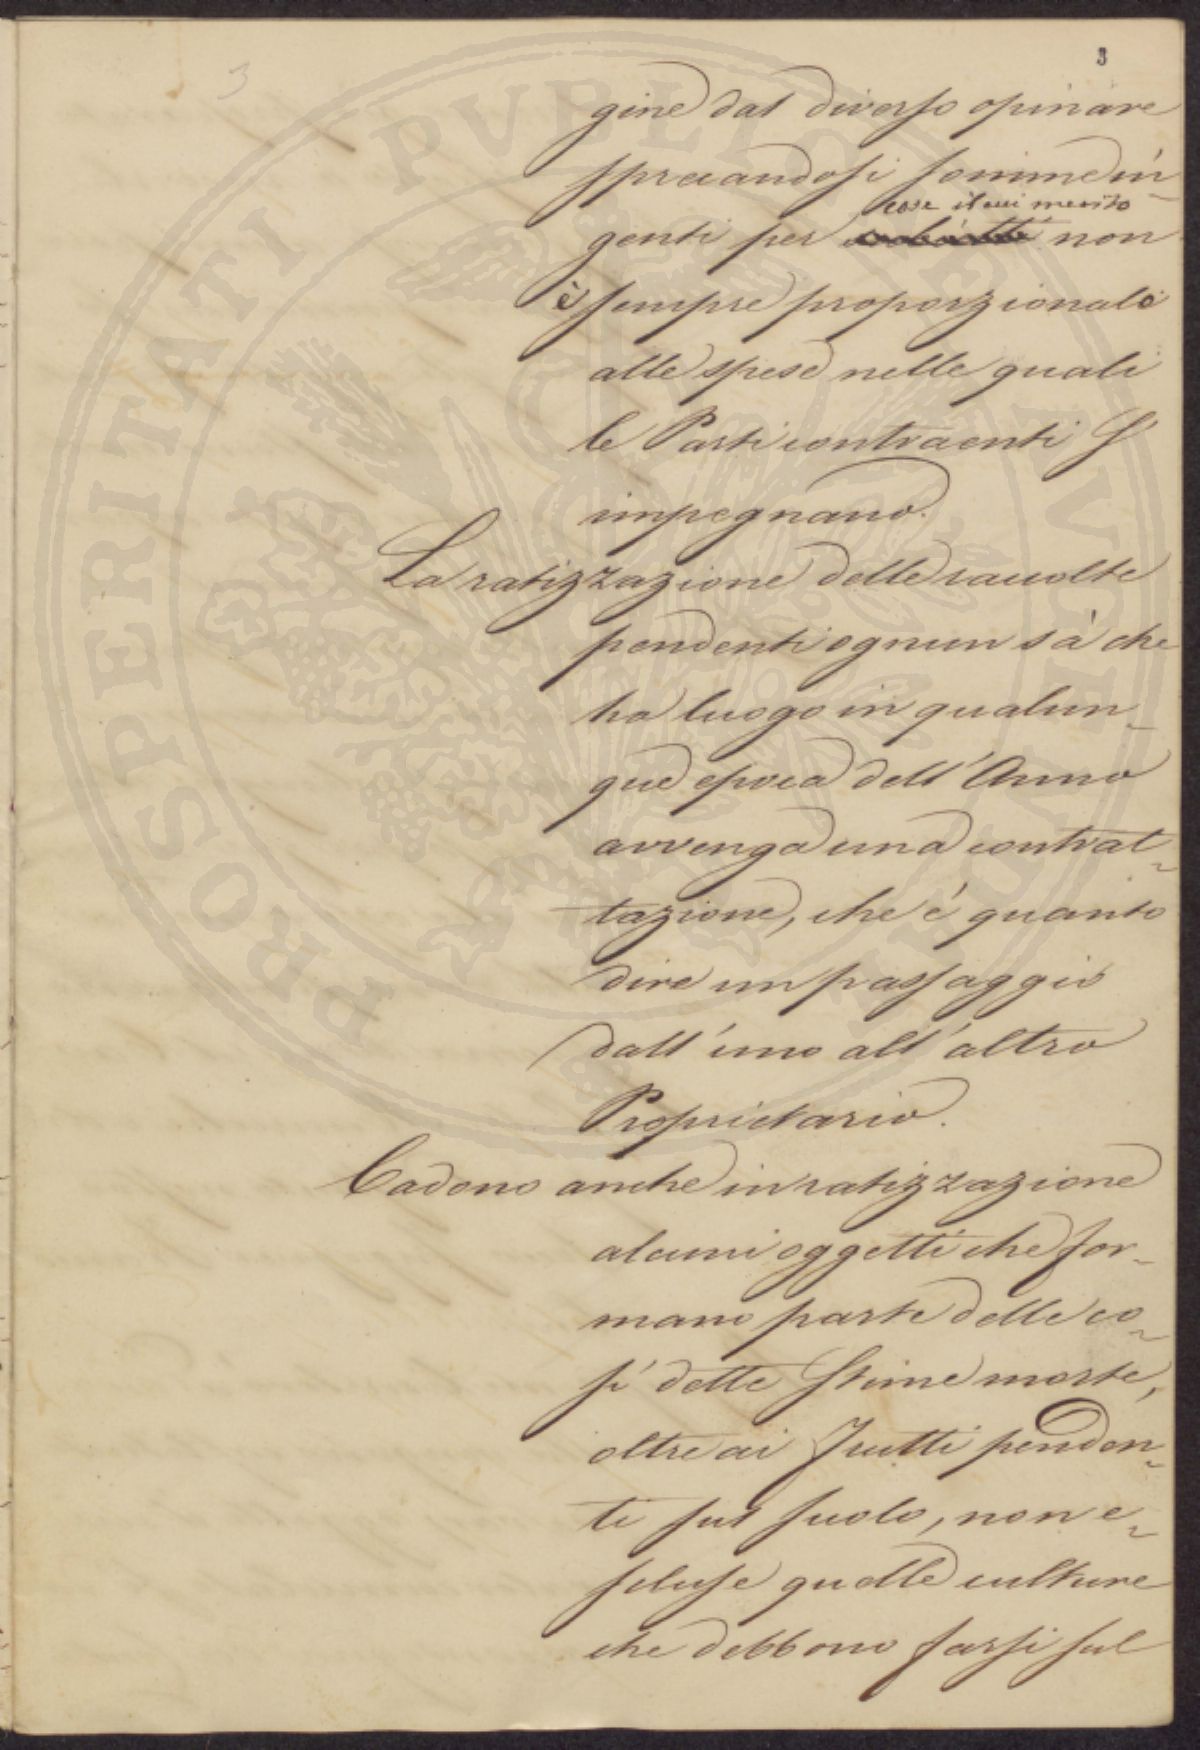 3
3
gine dal diverso opinare
sprecandosi somme in-
cose il cui merito
genti per non
è sempre proporzionale
alle spese nelle quali
le Parti contraenti s'
impegnano.
La ratizzazione delle raccolte
pendenti ognun sà che
ha luogo in qualun-
que epoca dell'Anno
avvenga una contrat-
tazione, che è quanto
dire un passaggio
dall'uno all'altro
Proprietario.
Cadono anche in ratizzazione
alcuni oggetti che for-
mano parte delle co-
sì dette Stime morte,
oltre ai Frutti penden-
ti sul suolo, non e-
scluse quelle culture
che debbono farsi sul
PROSPERITATI PVBLICAE AVGENDAE